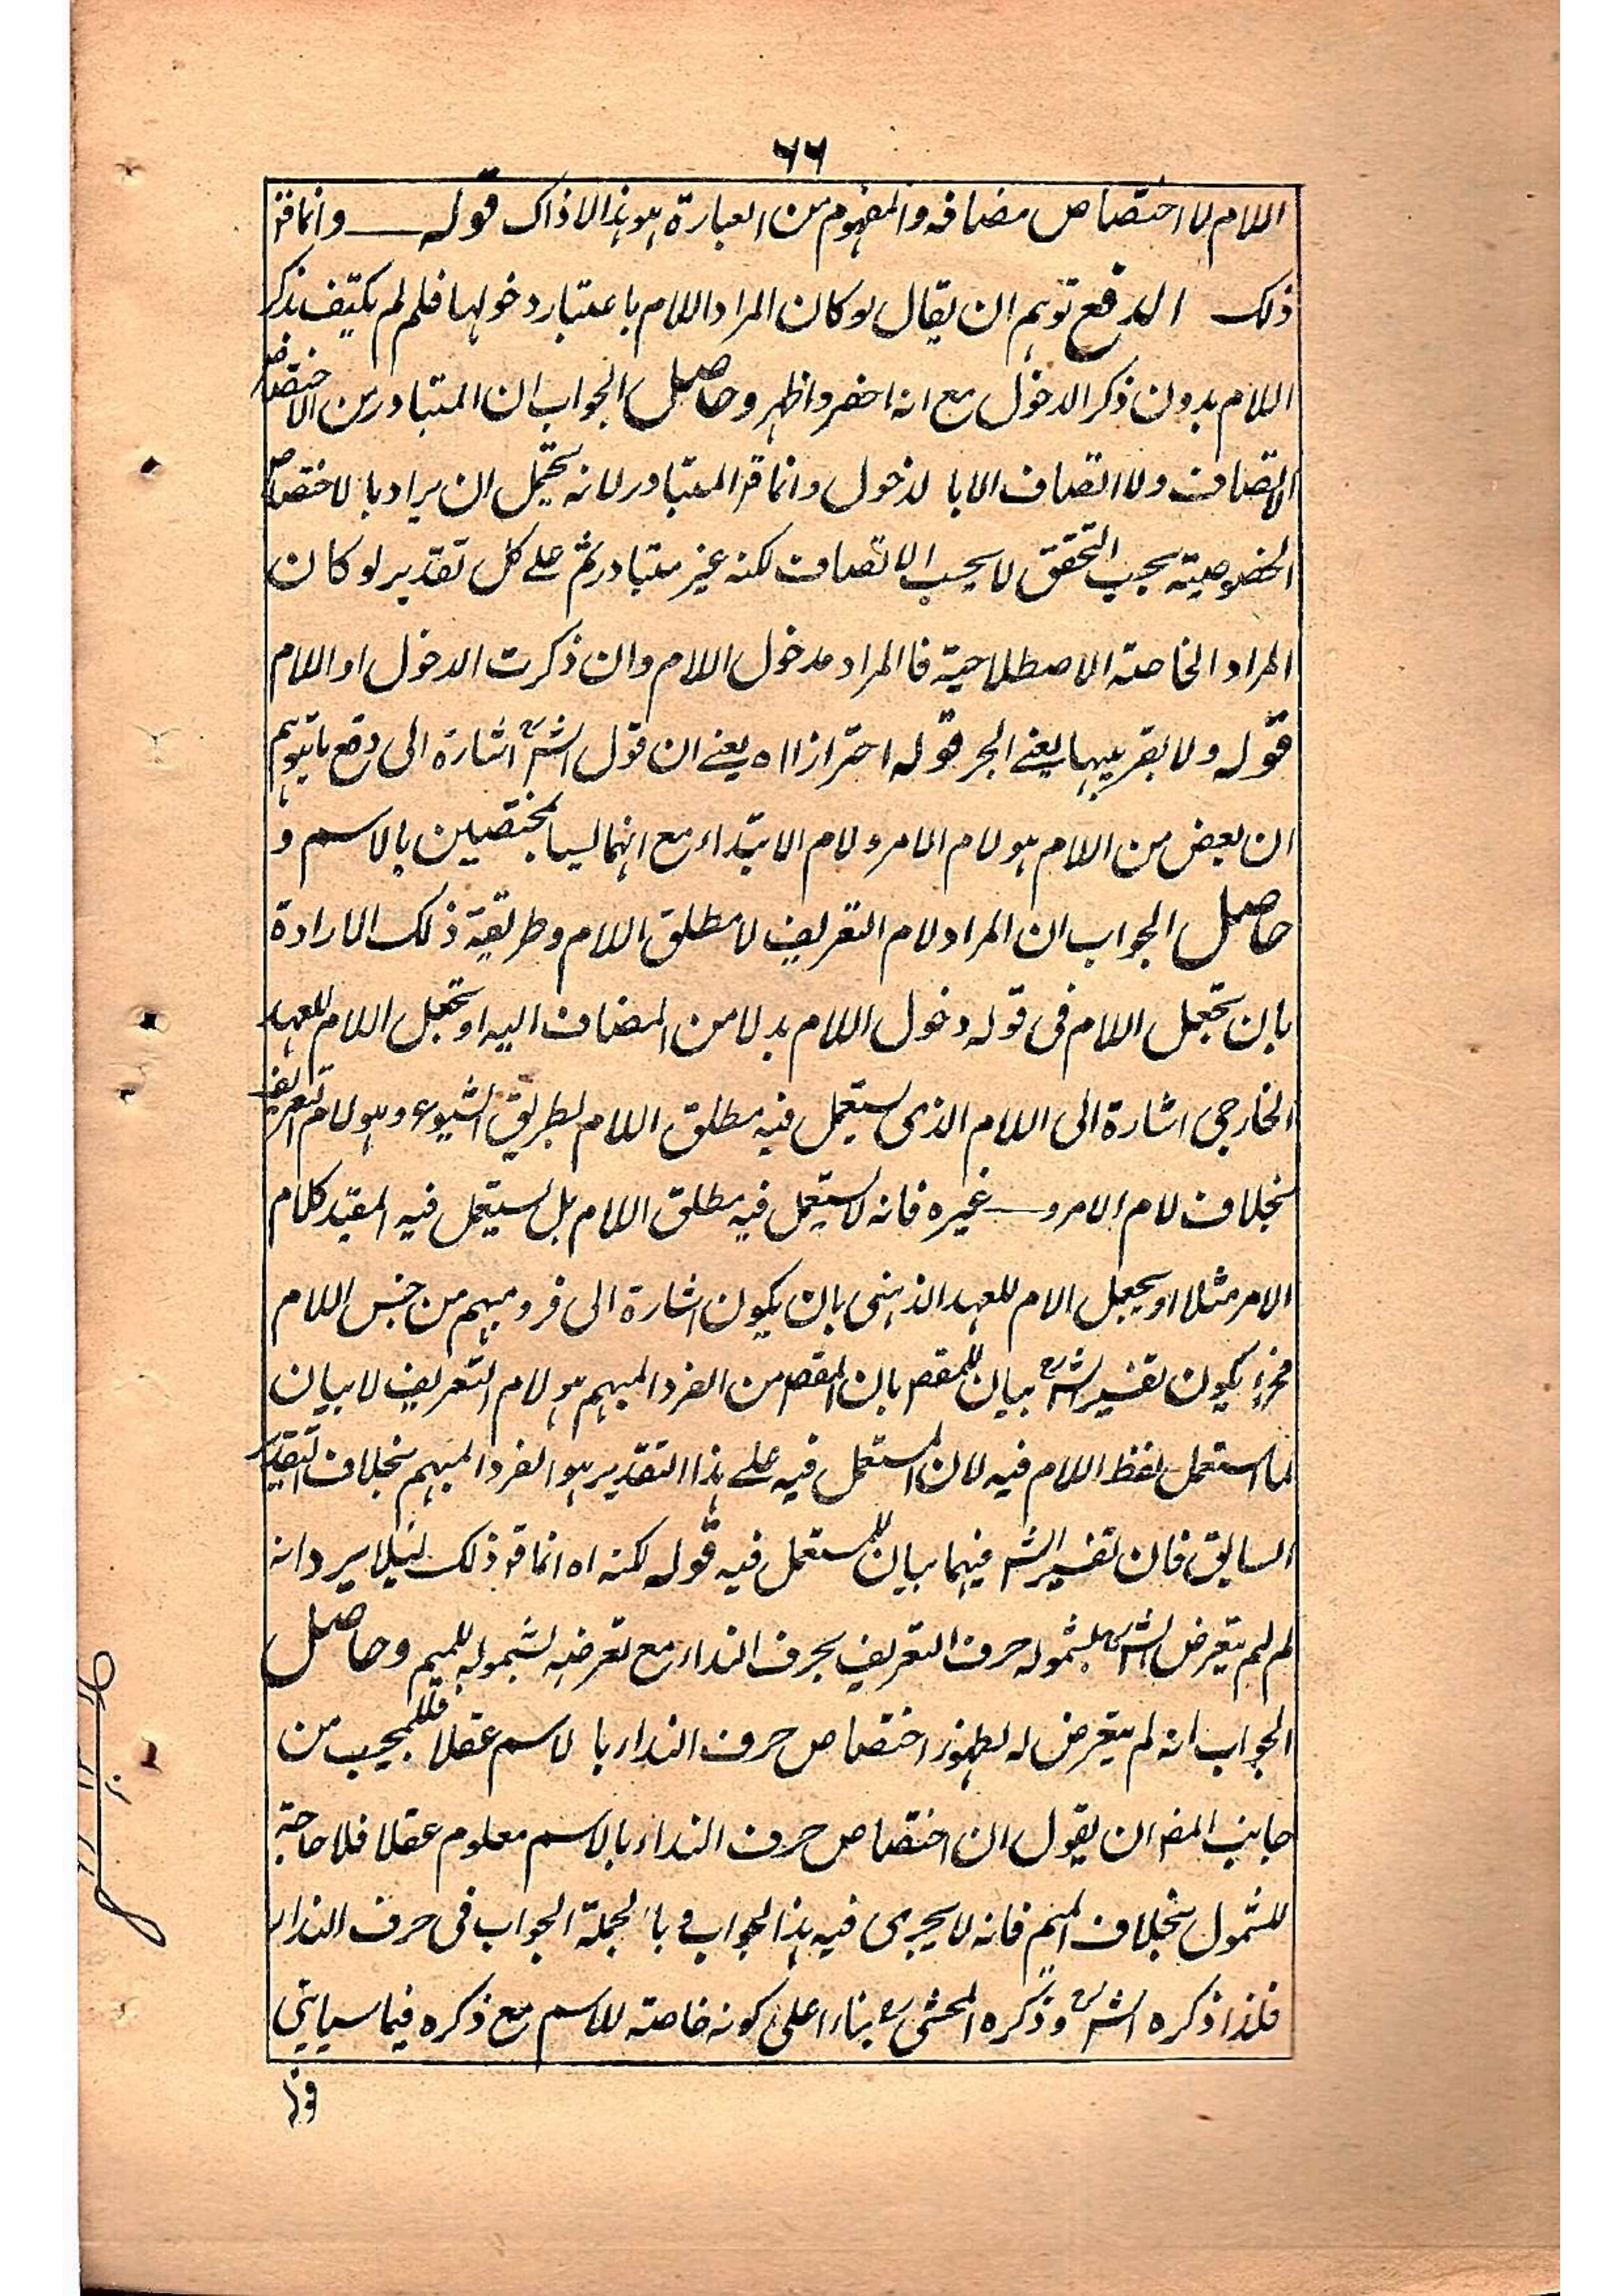 ٦٦
اللام لا اختصاص مضافه والمفهوم من العبارة هو هذا لا ذاك قوله وانما قد
ذلك الدفع توهم ان يقال لو كان المراد اللام باعتبار دخولها فلم لم يكتف بذكر
اللام بدون ذكر الدخول مع انه اخصر واظهر وحاصل الجواب ان المتبادر من الاختصاص
الاتصاف ولا اتصاف الا بالدخول وانما قد المتبادر لانه يحتمل ان يراد بالاختصاص
الخصوصية بحسب التحقق لا بحسب الاتصاف لكنه غير متبادر ثم على كل تقدير لو كان
المراد الخاصة الاصطلاحية فالمراد مدخول اللام وان ذكرت الدخول او اللام
قوله ولا بقريبها يعنى الجر قوله احترازا اه يعنى ان قول الش اشارة الى دفع ما يتوهم
ان بعض من اللام هو لام الامر ولام الابتداء مع انهما ليسا بمختصين بالاسم و
حاصل الجواب ان المراد لام التعريف لا مطلق اللام وطريقة ذلك الارادة
بان تجعل اللام فى قوله دخول اللام بدلا من المضاف اليه او تجعل اللام للعهد
الخارجى اشارة الى اللام الذى يستعمل فيه مطلق اللام بطريق الشيوع وهو لام التعريف
بخلاف لام الامر و غيره فانه لا يستعمل فيه مطلق اللام بل يستعمل فيه المقيد كلام
الامر مثلا او يجعل الام للعهد الذهنى بان يكون اشارة الى فرد مبهم من جنس اللام
فح يكون تفسير الش بيان للمقص بان المقص من الفرد المبهم هو لام التعريف لا بيان
لما استعمل لفظ اللام فيه لان المستعمل فيه على هذا التقدير هو الفرد المبهم بخلاف التقدير
السابق فان تفسير الش فيهما بيان للمستعمل فيه قوله لكنه اه انما قد ذلك لئلا يرد انه
لم لم يتعرض الش لشموله حرف التعريف بحرف النداء مع تعرضه لشموله للميم وحاصل
الجواب انه لم يتعرض له لظهور اختصاص حرف النداء بالاسم عقلا فللمجيب من
جانب المص ان يقول ان اختصاص حرف النداء بالاسم معلوم عقلا فلا حاجة
للشمول بخلاف الميم فانه لا يجرى فيه هذا الجواب و بالجملة الجواب فى حرف النداء
فلذا ذكره الش وذكره المحشى بناء على كونه خاصة للاسم مع ذكره فيما سياتى